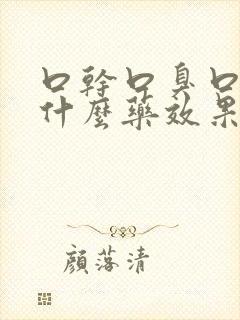 口幹口臭口
什麼藥效果
顏落清